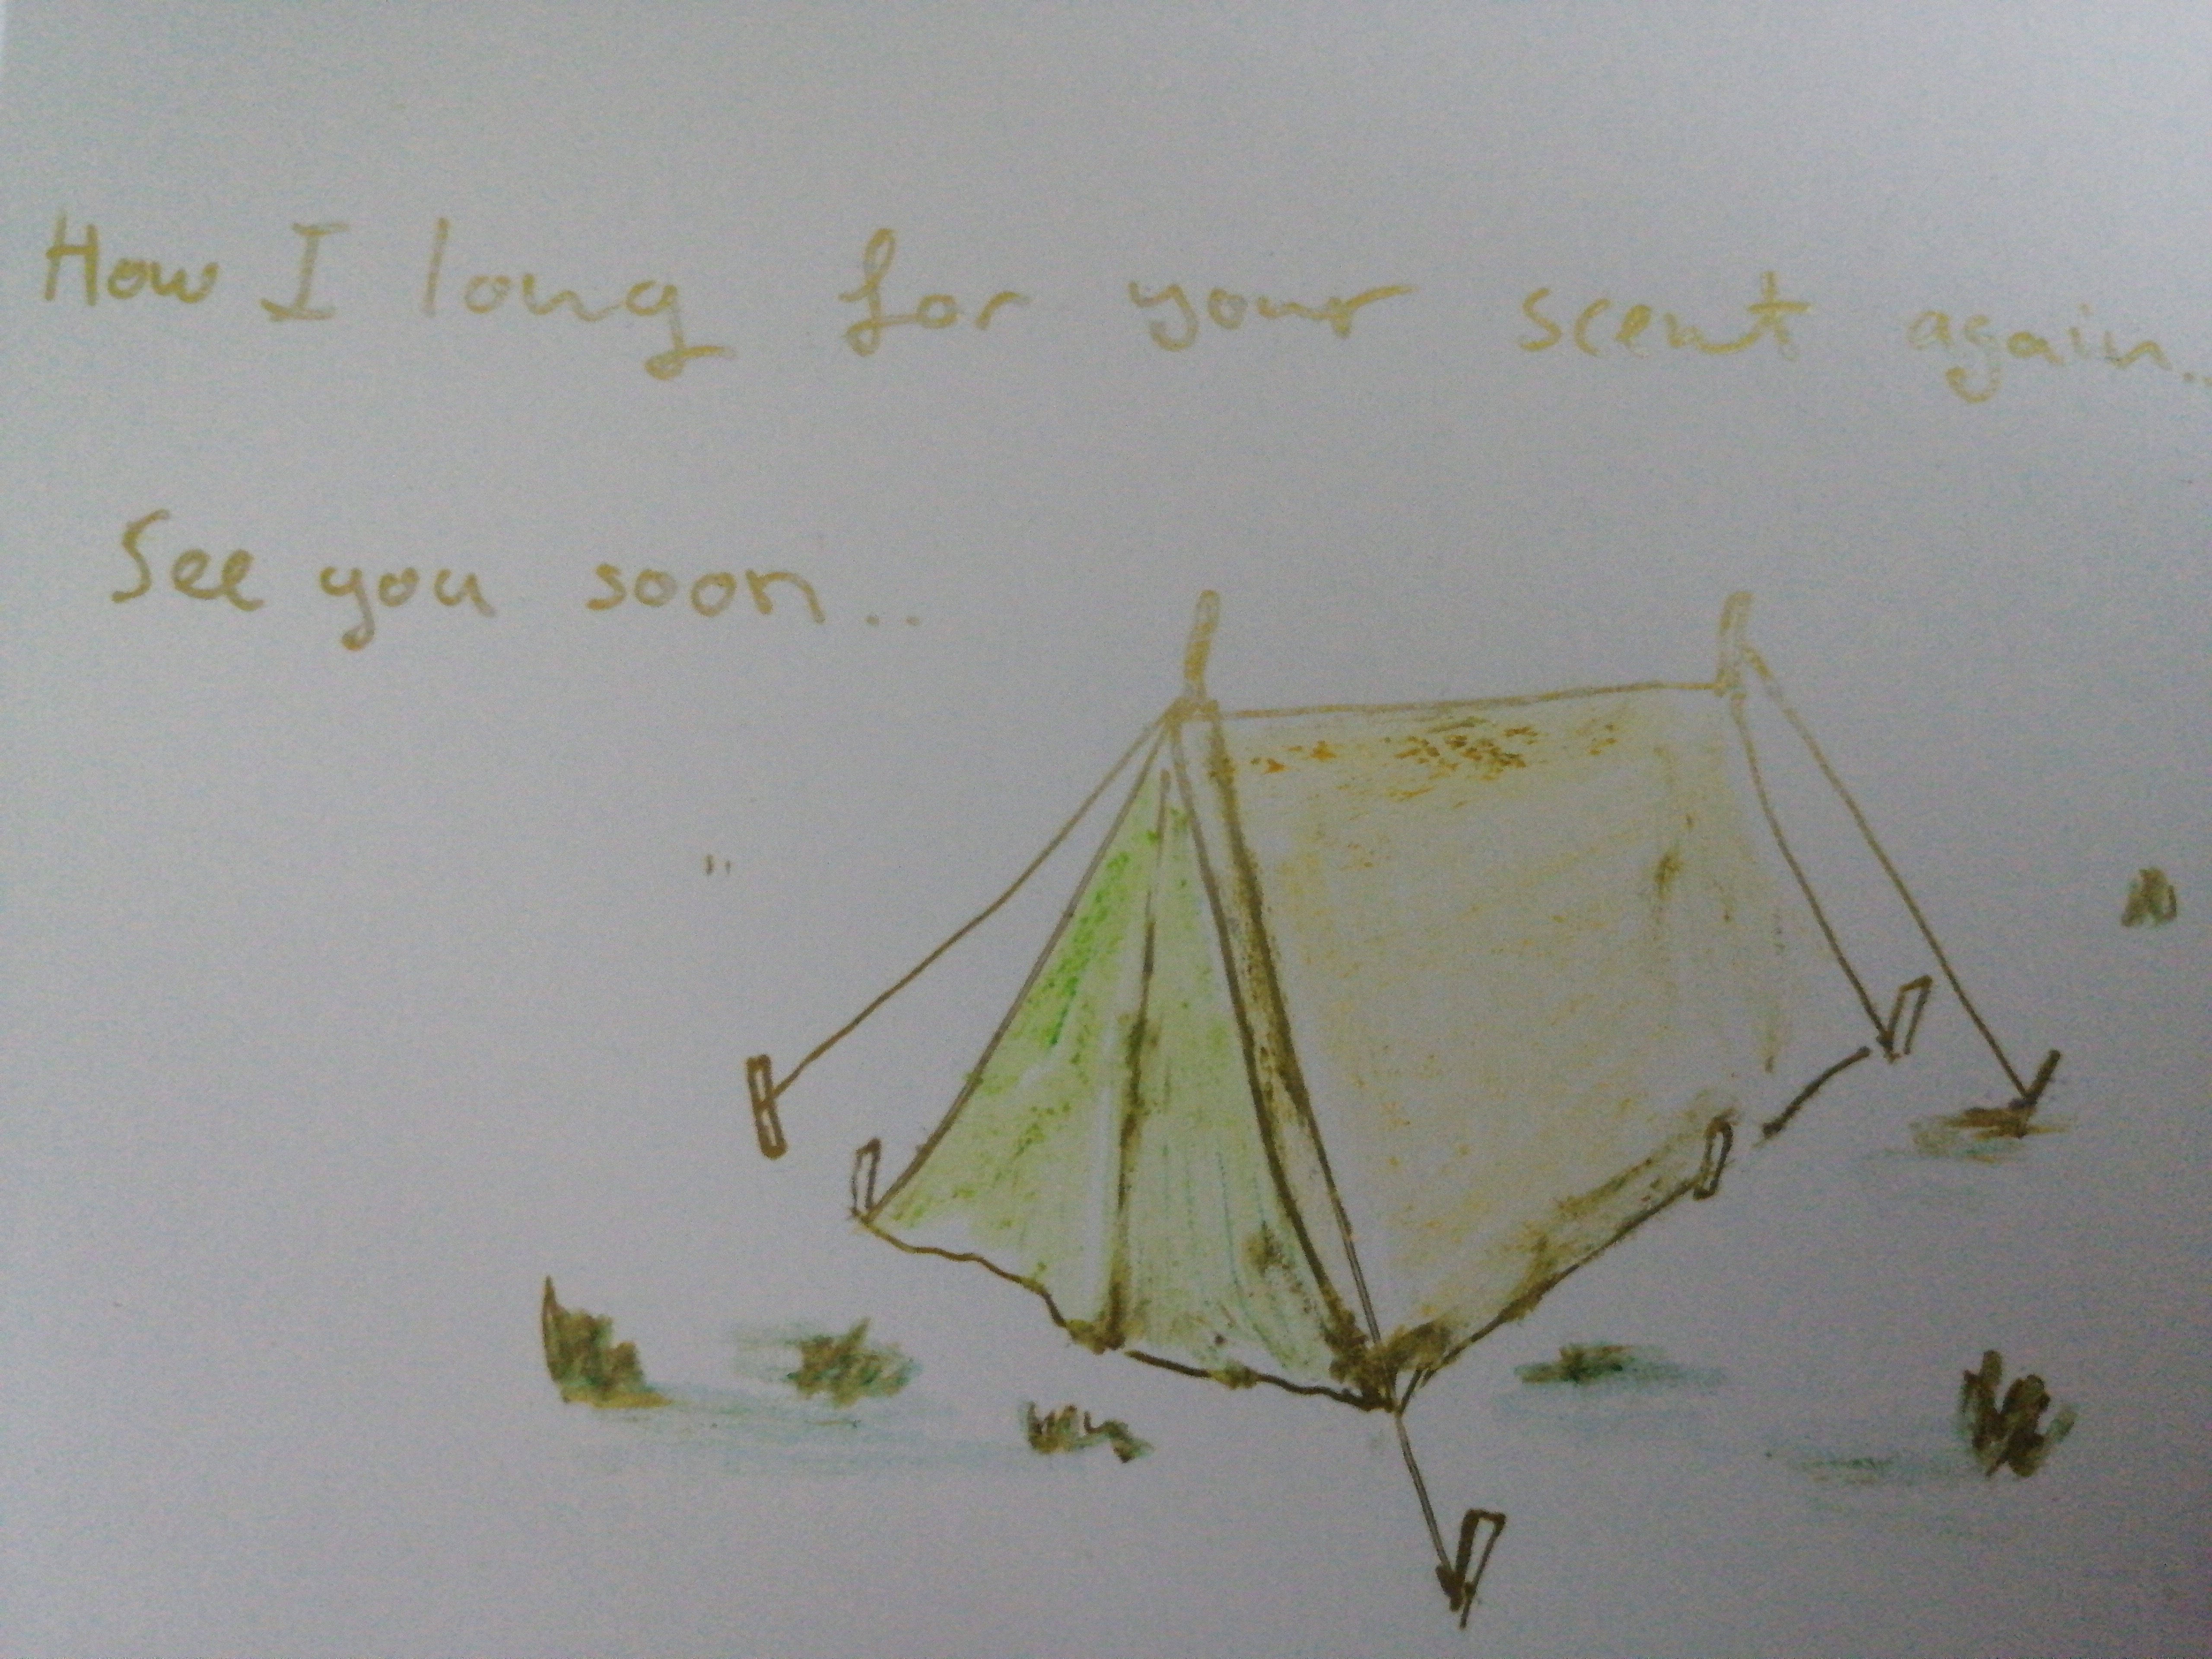 How I long for your scent again...
See you soon...